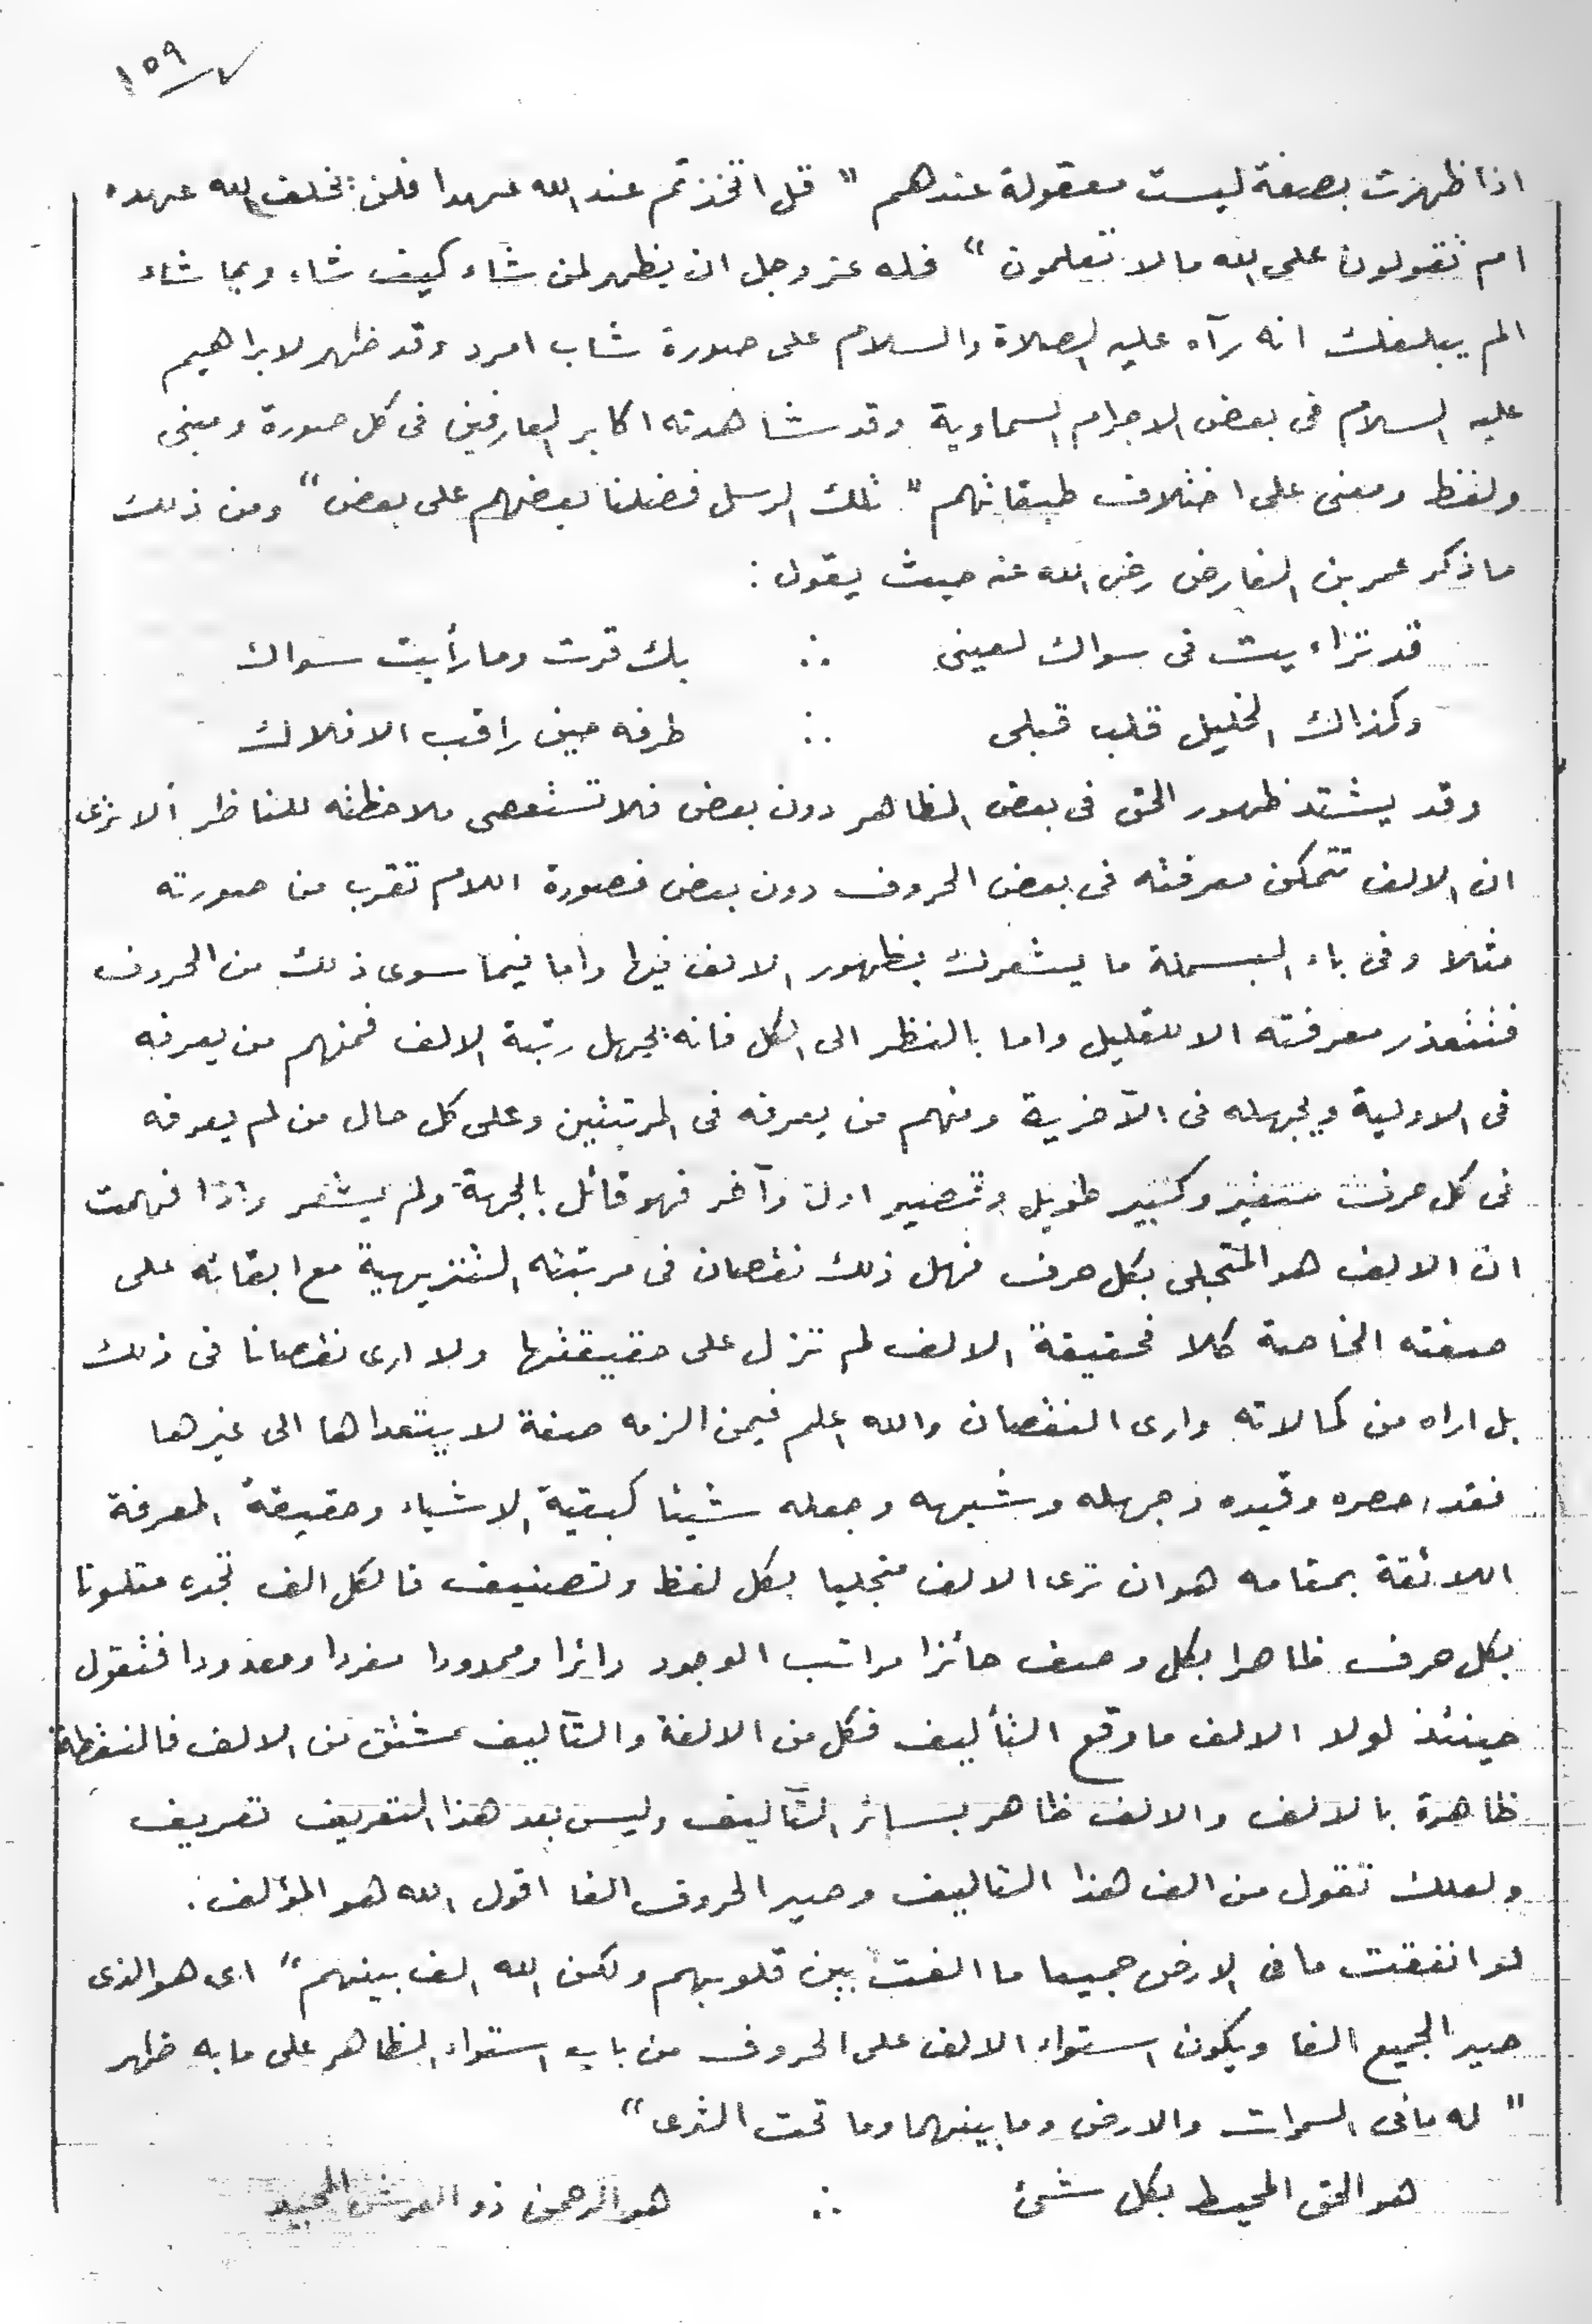 ١٥٩
اذا ظهرت بصفة ليست معقولة عندهم " قل اتخذتم عند الله عهدا فلن يخلف الله عهده
ام تقولون على الله مالا تعلمون " فله عز وجل ان يظهر لمن شاء كيف شاء وبما شاء
الم يبلغك انه رآه عليه الصلاة والسلام على صورة شاب امرد وقد ظهر لابراهيم
عليه السلام فى بعض الاجرام السماوية وقد شاهدته اكابر العارفين فى كل صورة ومبنى
ولفظ ومعنى على اختلاف طبقاتهم " تلك الرسل فضلنا بعضهم على بعض " ومن ذلك
ماذكر عمر بن الفارض رضى الله عنه حيث يقول :
قد تراءيت فى سواك لعينى ∴ بك قرت وما رأيت سواك
وكذاك الخليل قلب قبلى ∴ طرفه حين راقب الافلاك
وقد يشتد ظهور الحق فى بعض المظاهر دون بعض فلا تستعصى ملاحظته للناظر ألا ترى
ان الالف تتمكن معرفته فى بعض الحروف دون بعض فصورة اللام تقرب من صورته
مثلا وفى باء البسملة ما يشعرك بظهور الالف فيها واما فيما سوى ذلك من الحروف
فتتعذر معرفته الا للقليل واما بالنظر الى الكل فانه يجهل رتبة الالف فمنهم من يعرفه
فى الاولية ويجهله فى الآخرية ومنهم من يعرفه فى المرتبتين وعلى كل حال من لم يعرفه
فى كل حرف صغير وكبير طويل وقصير اول وآخر فهو قائل بالجهة ولم يشعر واذا فهمت
ان الالف هو المتجلى بكل حرف فهل ذلك نقصان فى مرتبته التنزيهية مع ابقائه على
صفته الخاصة كلا فحقيقة الالف لم تزل على حقيقتها ولا ارى نقصانا فى ذلك
بل اراه من كمالاته وارى النقصان والله اعلم فيمن الزمه صفة لا يتعداها الى غيرها
فقد حصره وقيده وجهله وشبهه وجعله شيئا كبقية الاشياء وحقيقة المعرفة
اللائقة بمقامه هو ان ترى الالف متجليا بكل لفظ وتصنيف فالكل الف تجده متلونا
بكل حرف ظاهرا بكل وصف حائزا مراتب الوجود دائرا وممدودا مفردا ومعدودا فتقول
حينئذ لولا الالف ما وقع التأليف فكل من الالفة والتآليف مشتق من الالف فالنقطة
ظاهرة بالالف والالف ظاهر بسائر التآليف وليس بعد هذا التعريف تعريف
ولعلك تقول من الف هذا التاليف وصير الحروف الفا اقول الله هو المؤلف .
لو انفقت ما فى الارض جميعا ما الفت بين قلوبهم ولكن الله الف بينهم " اى هو الذى
صير الجميع الفا ويكون استواء الالف على الحروف من باب استواء الظاهر على ما به ظهر
" له ما فى السموات والارض وما بينهما وما تحت الثرى "
هو الحق المحيط بكل شئ ∴ هو الرحمن ذو العرش المجيد